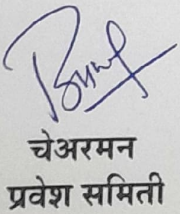 चेअरमन
प्रवेश समिती